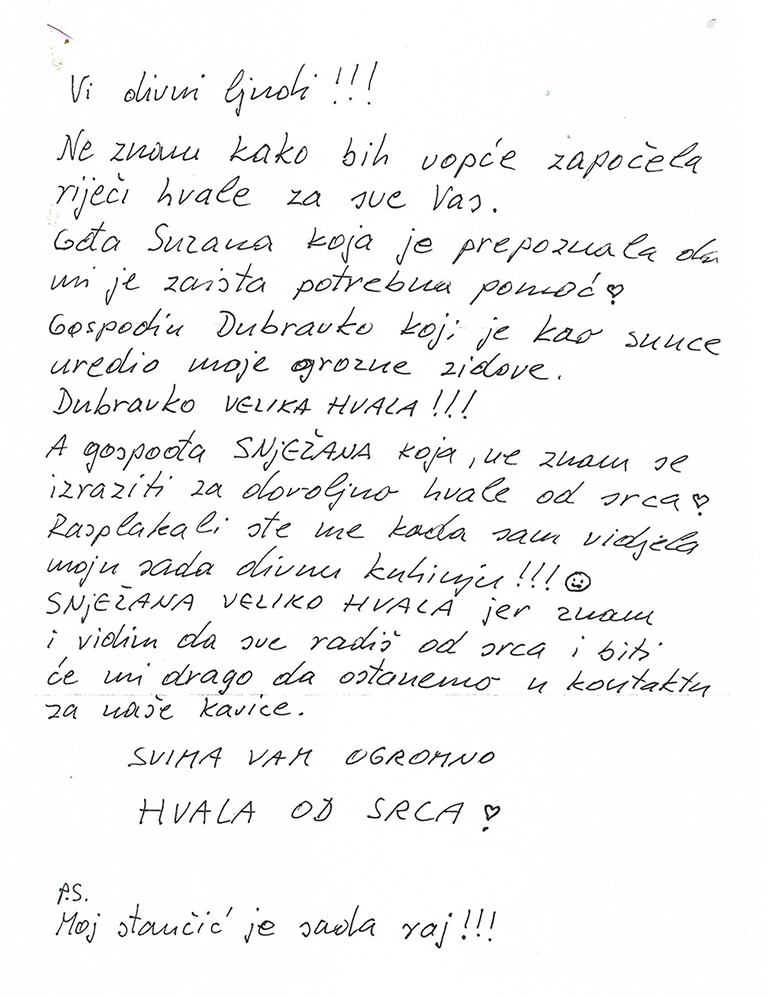 Vi divni ljudi!!!
Ne znam kako bih uopće započela
riječi hvale za sve Vas.
Gđa Suzana koja je prepoznala da
mi je zaista potrebna pomoć♡
Gospodin Dubravko koji je kao sunce
uredio moje grozne zidove.
Dubravko VELIKA HVALA!!!
A gospođa SNJEŽANA koja, ne znam se
izraziti za dovoljno hvale od srca♡
Rasplakali ste me kada sam vidjela
moju sada divnu kuhinju!!!☺
SNJEŽANA VELIKO HVALA jer znam
i vidim da sve radiš od srca i biti
će mi drago da ostanemo u kontaktu
za naše kavice.
SVIMA VAM OGROMNO
HVALA OD SRCA♡
P.S.
Moj stančić je sada raj!!!